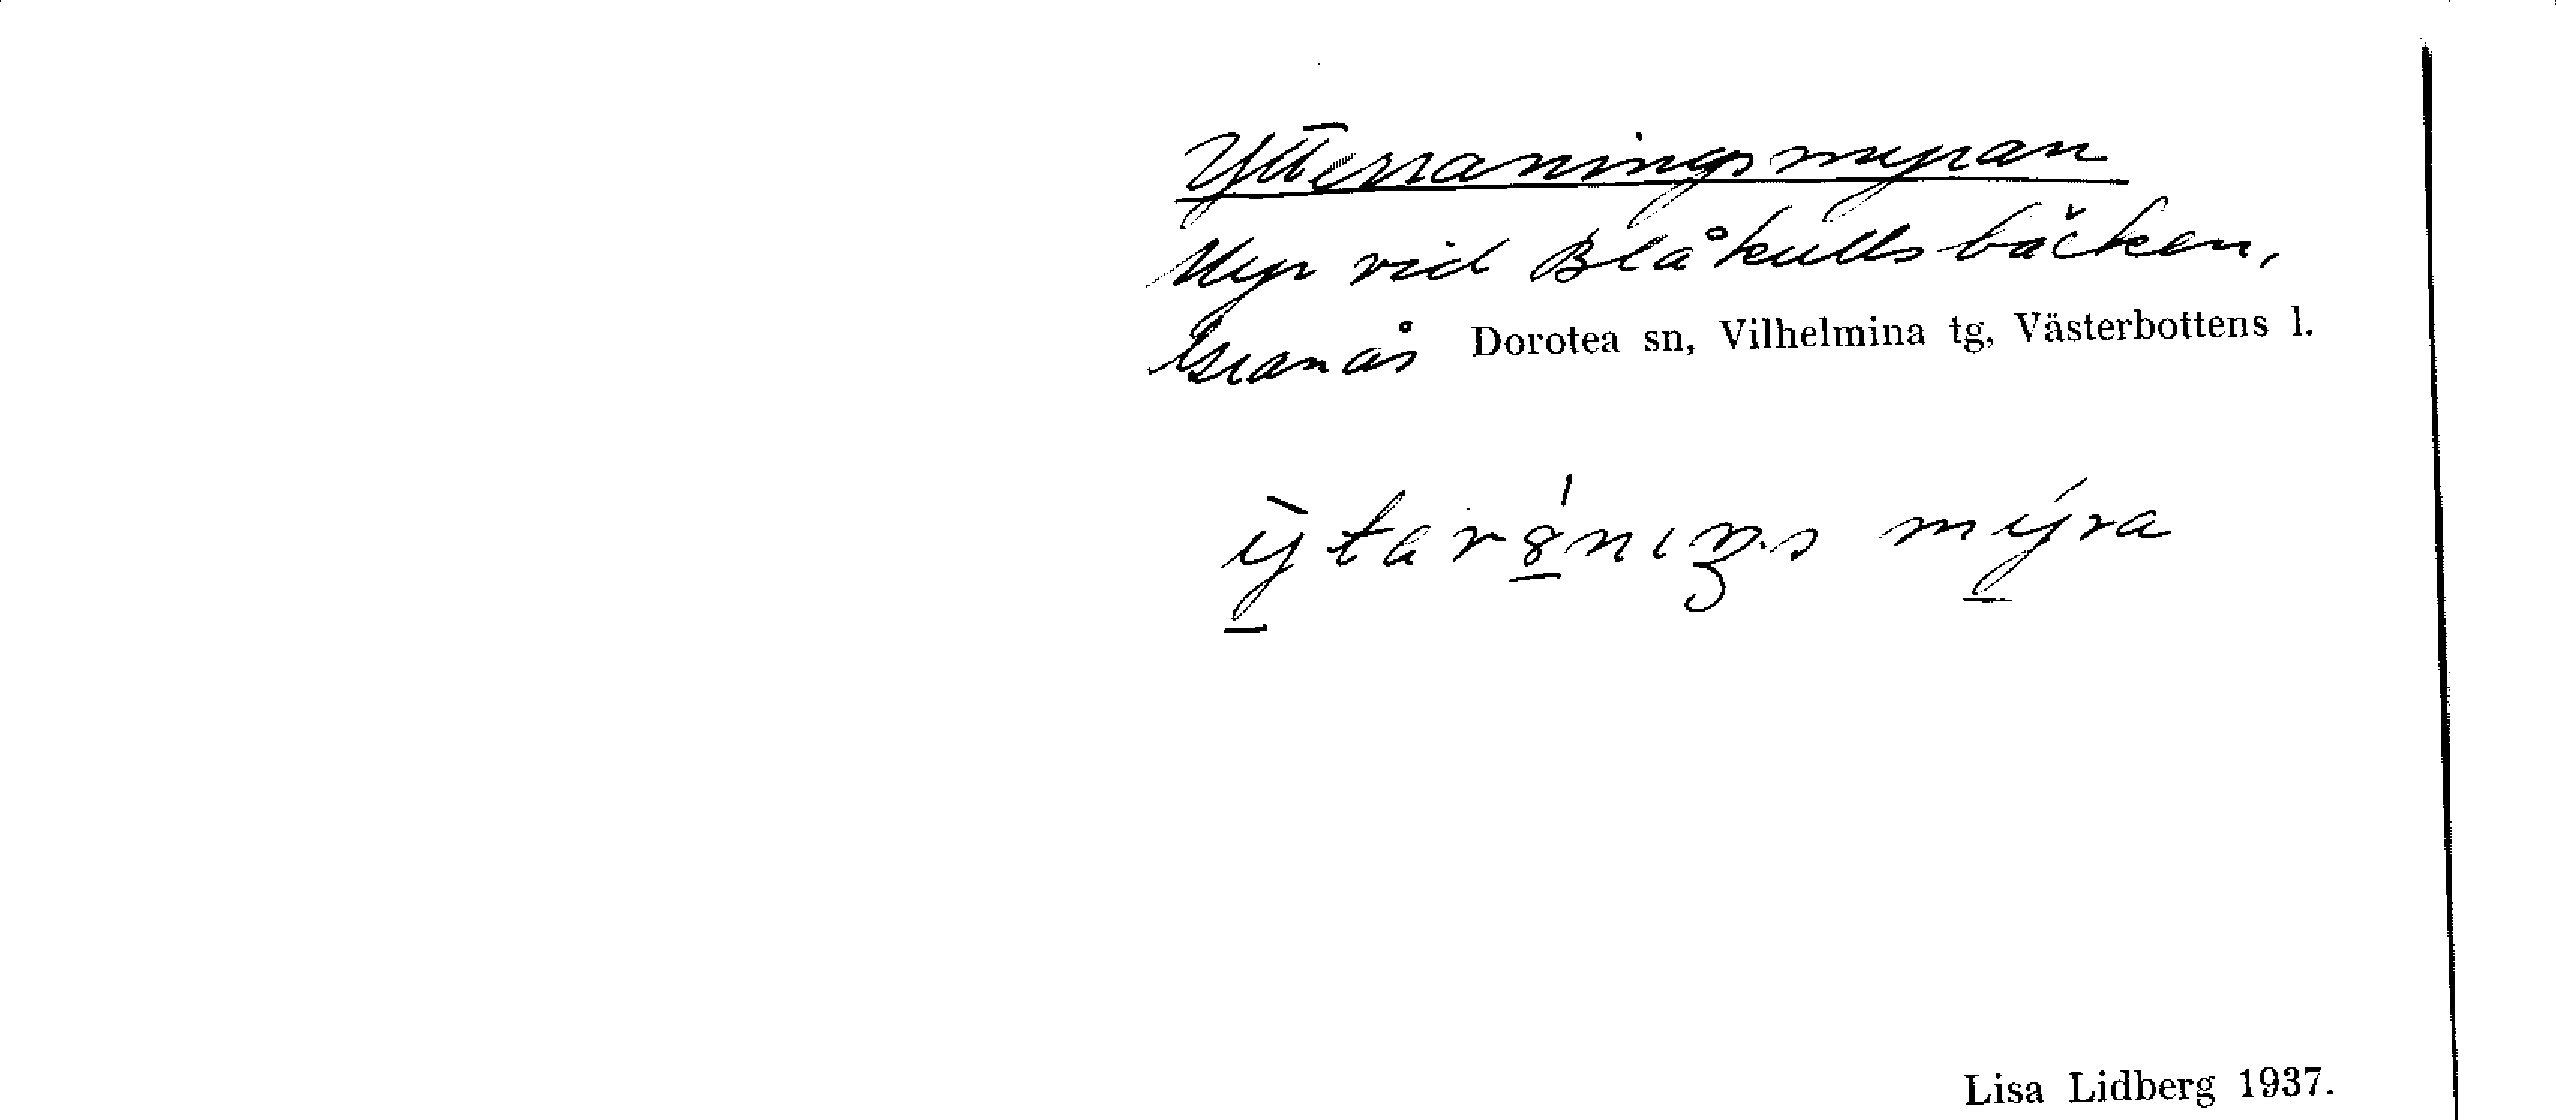 Ytterraningsmyran
Myr vid Blåkullsbäcken,
Granås Dorotea sn, Vilhelmina tg, Västerbottens l.
ỳtaránıŋs mýra
Lisa Lidberg 1937.